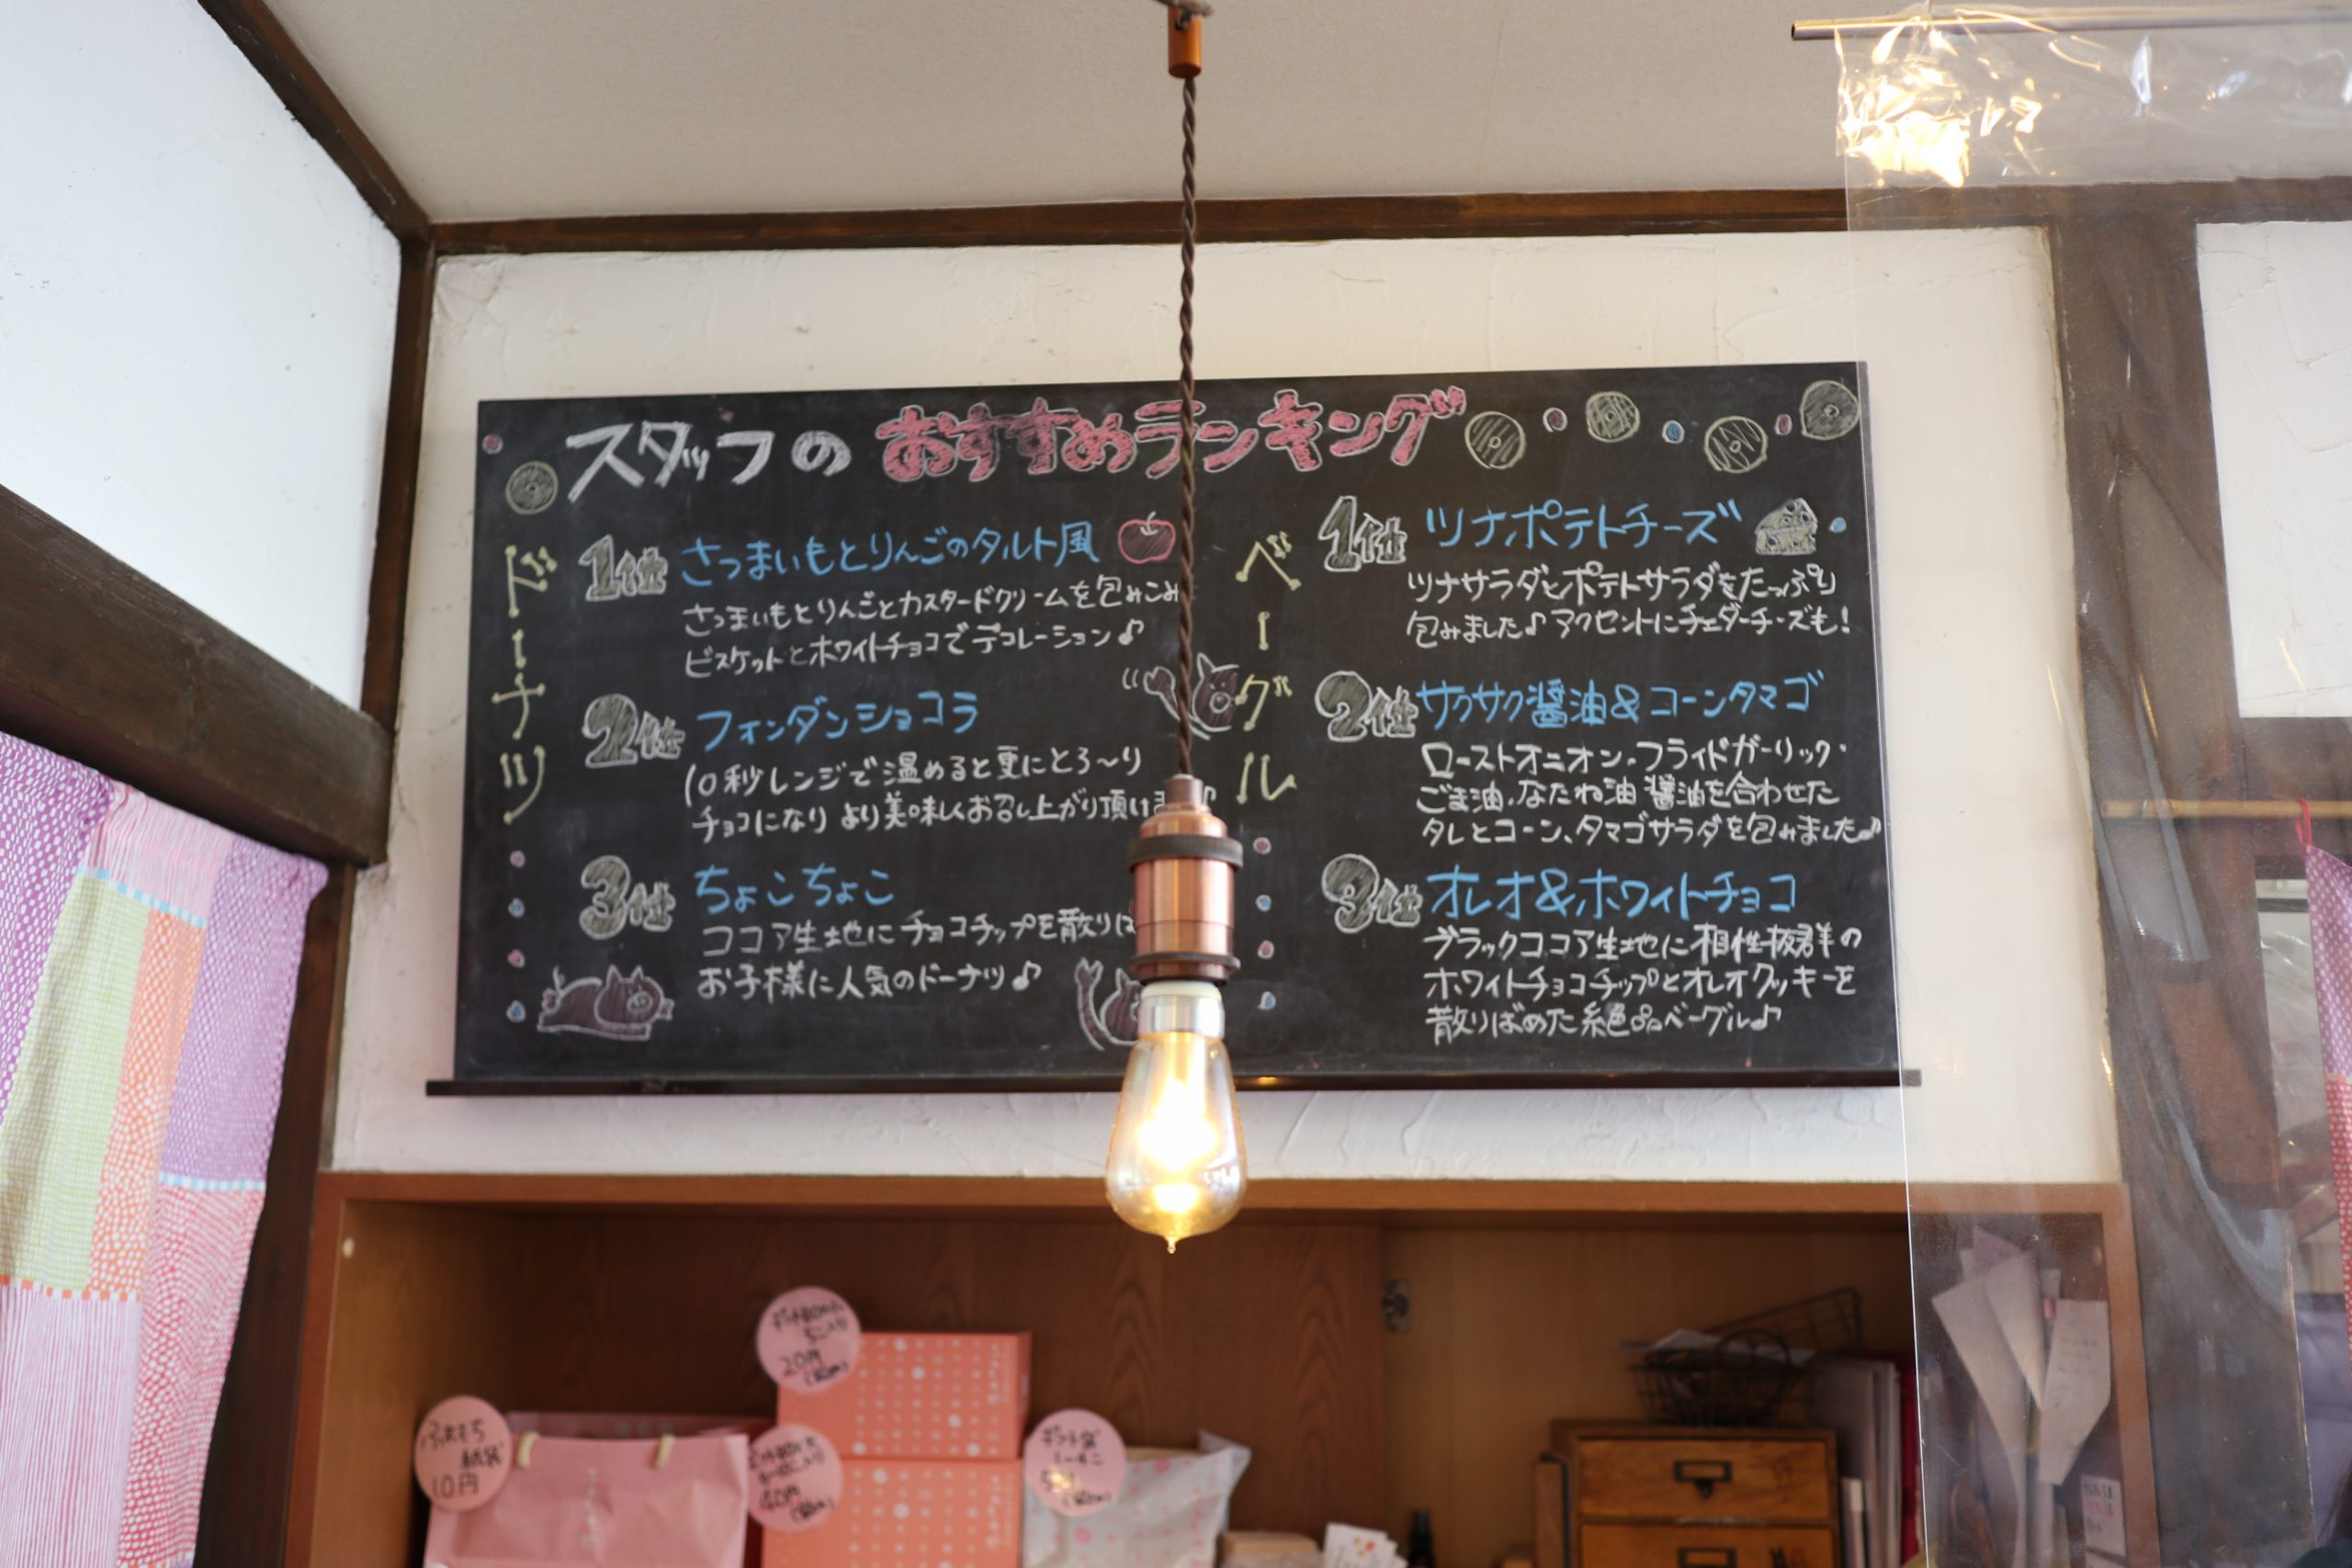 スタッフのおすすめランキング
ドーナツ
1位 さつまいもとりんごのタルト風
さつまいもとりんごとカスタードクリームを包みこみ
ビスケットとホワイトチョコでデコレーション♪
2位 フォンダンショコラ
10秒レンジで温めると更にとろ〜り
チョコになり より美味しくお召し上がり頂け
3位 ちょこちょこ
ココア生地にチョコチップを散りば
お子様に人気のドーナツ♪
ベーグル
1位 ツナポテトチーズ
ツナサラダとポテトサラダをたっぷり
包みました♪ アクセントにチェダーチーズも!
2位 サクサク醤油&コーンタマゴ
ローストオニオン・フライドガーリック・
ごま油、なたね油 醤油を合わせた
タレとコーン、タマゴサラダを包みました♪
3位 オレオ&ホワイトチョコ
ブラックココア生地に相性抜群の
ホワイトチョコチップとオレオクッキーを
散りばめた絶品ベーグル♪
20円
紙袋
10円
40円
ギフト袋